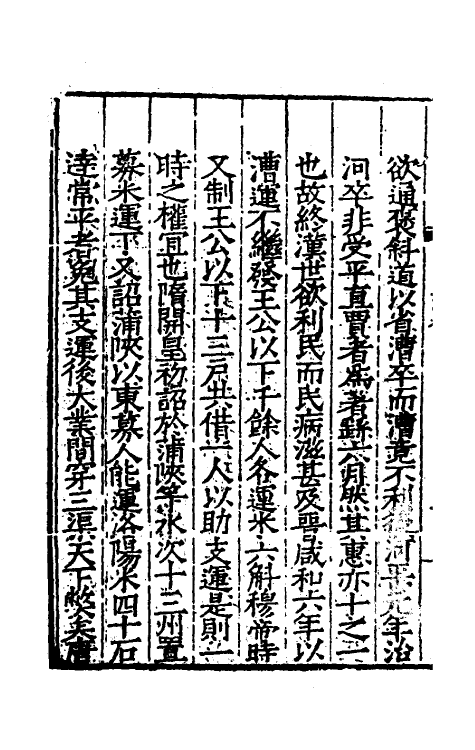 欲通褒斜道以省漕卒而漕竟不利河平元年治
河卒非受平直賈者為著繇六月然其惠亦十之二
也故終漢世欲利民而民病滋甚及晉咸和六年以
漕運不繼發王公以下千餘人各運米六斛穆帝時
又制王公以下十三戶共借一人以助支運是則一
時之權宜也隋開皇初詔於蒲陝等水次十三州置
募米運丁又詔蒲陝以東募人能運洛陽米四十石
達常平者免其支運後大業間穿三渠天下弊矣唐